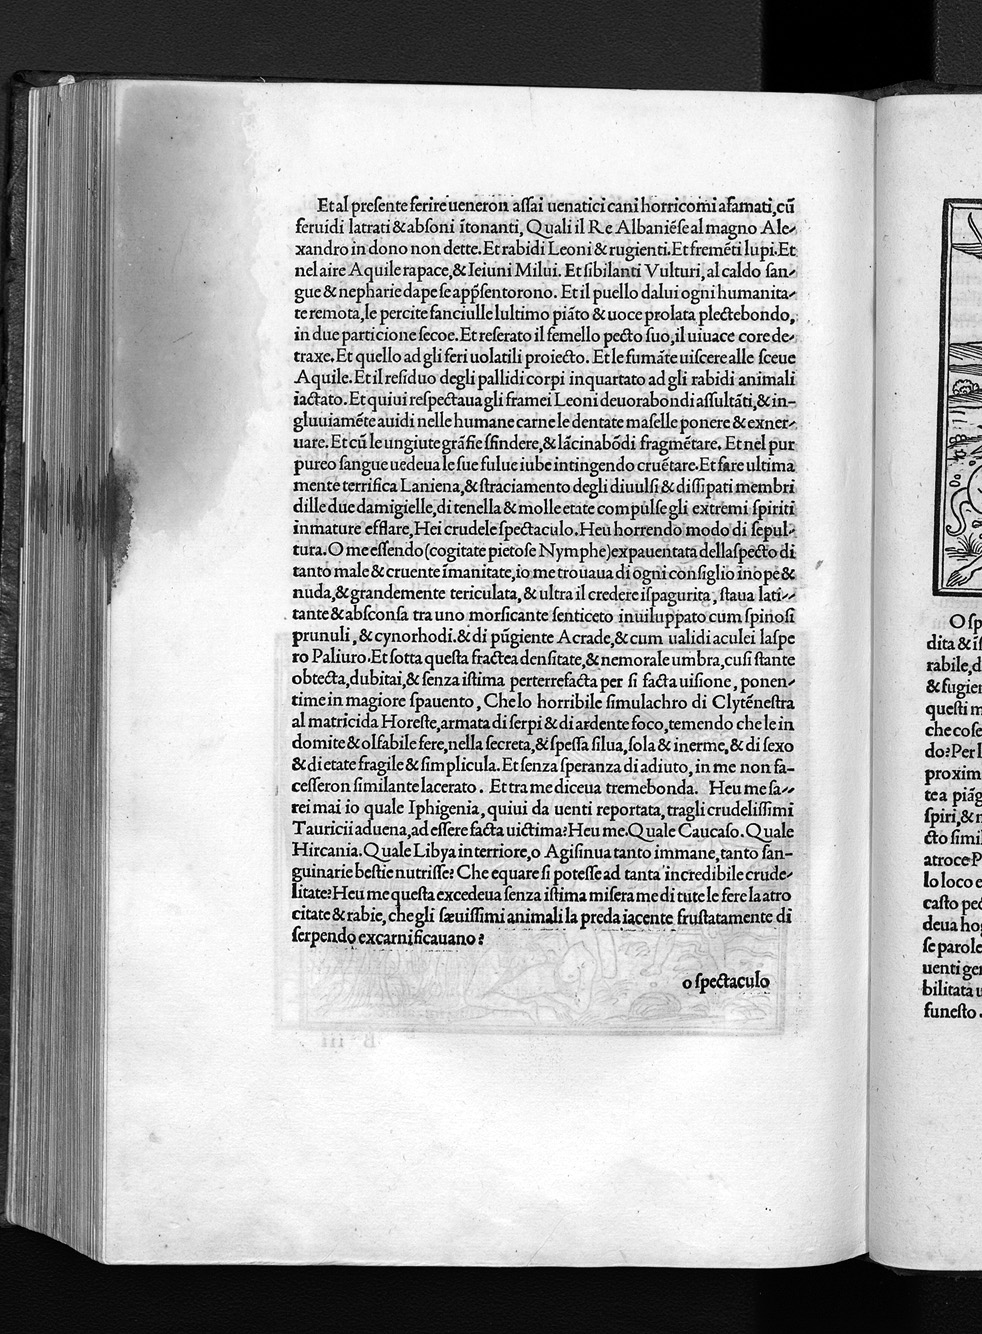 Et al preſente ferire ueneron aſſai uenatici cani horricomi afamati, cū
feruidi latrati & abſoni ītonanti, Quali il Re Albaniēſe al magno Ale-
xandro in dono non dette. Et rabidi Leoni & rugienti. Et fremēti lupi. Et
nel aire Aquile rapace, & Ieiuni Milui. Et ſibilanti Vulturi, al caldo ſan-
gue & nepharie dape ſe app̄ſentorono. Et il puello da lui ogni humanita-
te remota, le percite fanciulle lultimo piāto & uoce prolata plectebondo,
in due particione ſecoe. Et reſerato il femello pecto ſuo, il uiuace core de-
traxe. Et quello ad gli feri uolatili proiecto. Et le fumāte uiſcere alle ſceue
Aquile. Et il reſiduo degli pallidi corpi inquartato ad gli rabidi animali
iactato. Et quiui reſpectaua gli framei Leoni deuorabondi aſſultāti, & in-
gluuiamēte auidi nelle humane carne le dentate maſelle ponere & exner-
uare. Et cū le ungiute grāfie ſfindere, & lācinabōdi fragmētare. Et nel pur
pureo ſangue uedeua le ſue fulue iube intingendo cruētare. Et fare ultima
mente terrifica Laniena, & ſtraciamento degli diuulſi & diſſipati membri
dille due damigielle, di tenella & molle etate compulſe gli extremi ſpiriti
inmature efflare, Hei crudele ſpectaculo. Heu horrendo modo di ſepul-
tura. O me eſſendo (cogitate pietoſe Nymphe) expauentata dellaſpecto di
tanto male & cruente īmanitate, io me trouaua di ogni conſiglio inope &
nuda, & grandemente tericulata, & ultra il credere iſpagurita, ſtaua lati-
tante & abſconſa tra uno morſicante ſenticeto inuiluppato cum ſpinoſi
prunuli, & cynorhodi. & di pūgiente Acrade, & cum ualidi aculei laſpe
ro Paliuro. Et ſotta queſta fractea denſitate, & nemorale umbra, cuſi ſtante
obtecta, dubitai, & ſenza iſtima perterrefacta per ſi facta uiſione, ponen-
time in magiore ſpauento, Chelo horribile ſimulachro di Clytēneſtra
al matricida Horeſte, armata di ſerpi & di ardente foco, temendo che le in
domite & olfabile fere, nella ſecreta, & ſpeſſa ſilua, ſola & inerme, & di ſexo
& di etate fragile & ſimplicula. Et ſenza ſperanza di adiuto, in me non fa-
ceſſeron ſimilante lacerato. Et tra me diceua tremebonda. Heu me ſa-
rei mai io quale Iphigenia, quiui da uenti reportata, tragli crudeliſſimi
Tauricii aduena, ad eſſere facta uictima? Heu me. Quale Caucaſo. Quale
Hircania. Quale Libya interriore, o Agiſinua tanto immane, tanto ſan-
guinarie beſtie nutriſſe? Che equare ſi poteſſe ad tanta incredibile crude-
litate? Heu me queſta excedeua ſenza iſtima miſera me di tute le fere la atro
citate & rabie, che gli ſæuiſſimi animali la preda iacente fruſtatamente di
ſerpendo excarnificauano?
o ſpectaculo
O ſp
dita & iſ
rabile, d
& fugien
queſti m
che coſe
do? Per l
proxim
tea piāg
ſpiri, & n
cto ſimil
atroce P
lo loco e
caſto pec
deua hog
ſe parole
uenti gen
bilitata u
funeſto.